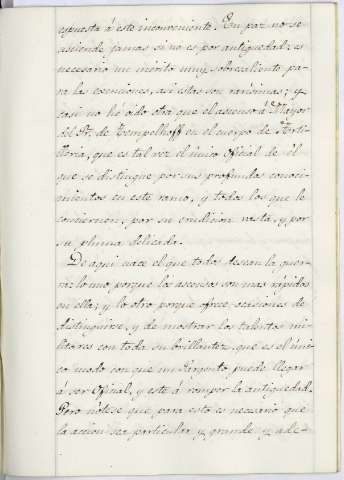 expuesta á este inconveniente. En paz no se
asciende jamas si no es por antiguedad; es
necesario un mérito muy sobresaliente pa-
ra las exenciones, asi estas son rarisimas; y
casi no hé oido otra que el ascenso á Mayor
del Sr. de Tempelhoff en el cuerpo de Arti-
lleria, que es tal vez el único oficial de él
que se distingue por sus profundos conoci-
mientos en este ramo, y todos los que le
conciernen, por su erudicion vasta, y por
su pluma delicada.
De aqui nace el que todos desean la guer-
ra: lo uno porque los ascensos son mas rápidos
en ella; y lo otro porque ofrece ocasiones de
distinguirse, y de mostrar los talentos mi-
litares con toda su brillantez, que es el úni-
co modo con que un Sargento puede llegar
á ser Oficial, y este á romper la antiguedad.
Pero nótese que para esto es necesario que
la accion sea particular y grande y ade-